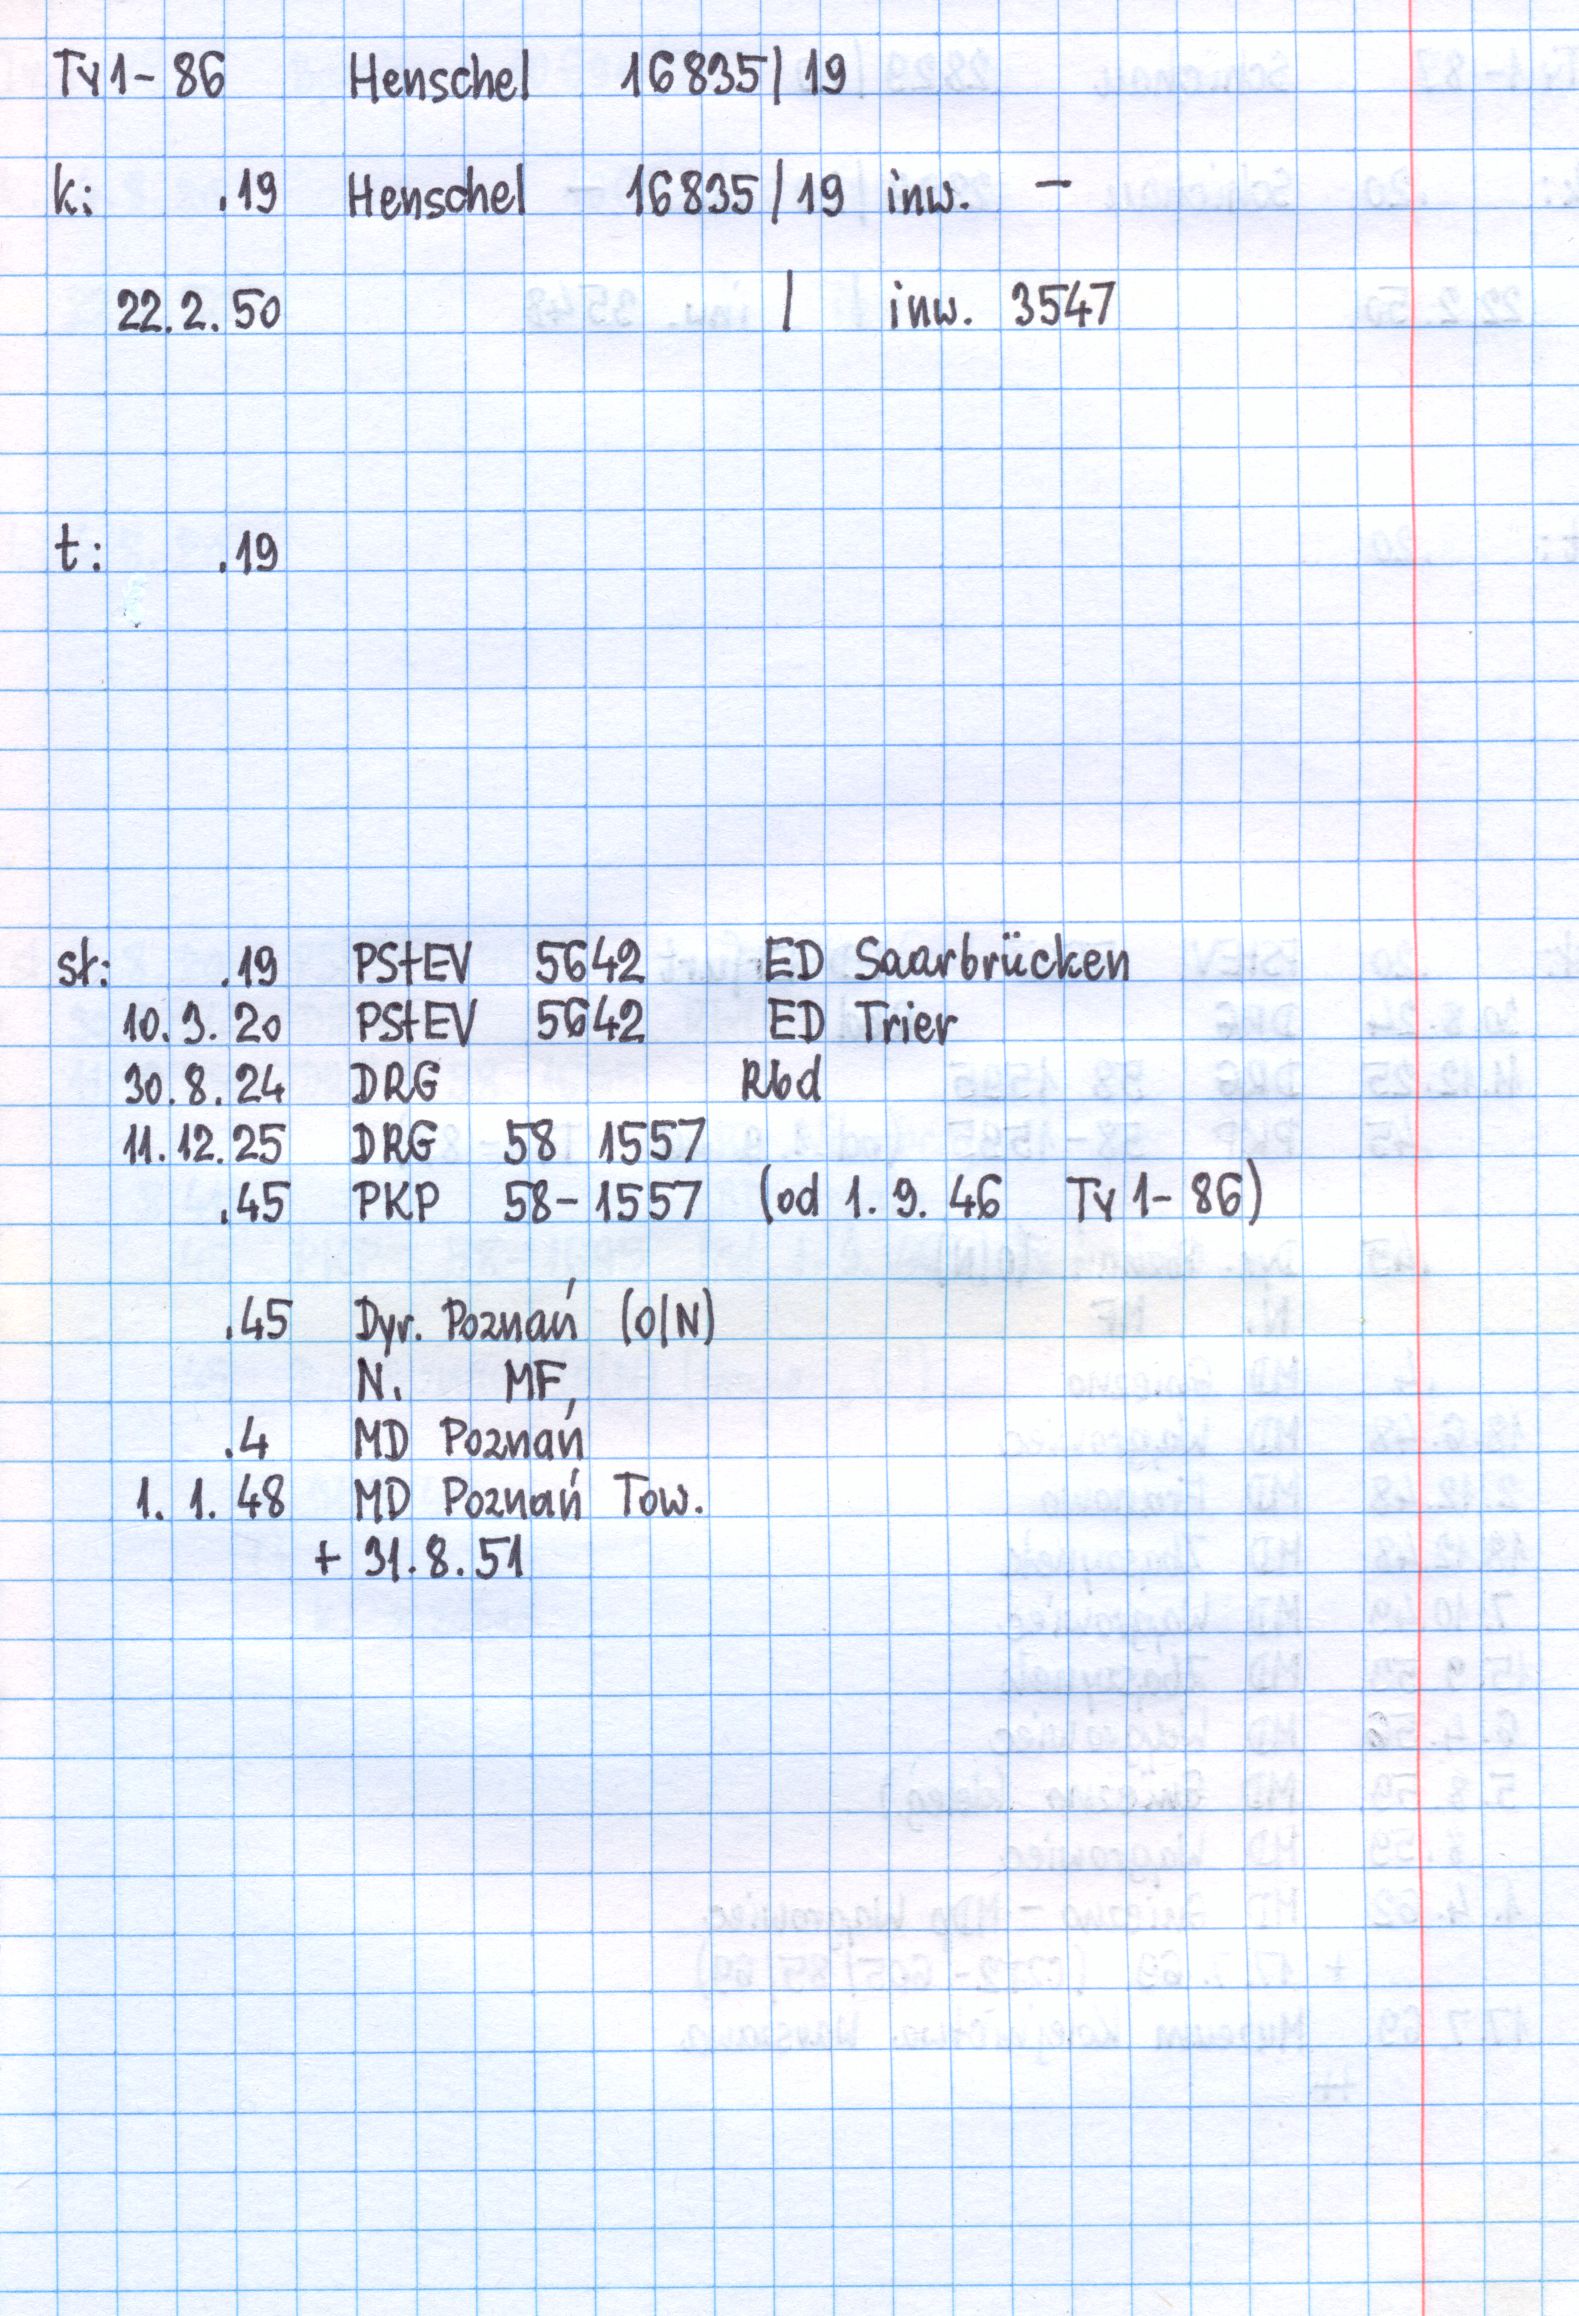 Ty1-86 Henschel 16835/19
k: .19 Henschel 16835/19 inw. -
22.2.50 / inw. 3547
t: .19
st: .19 PStEV 5642 ED Saarbrücken
10.3.20 PStEV 5642 ED Trier
30.8.24 DRG Rbd
11.12.25 DRG 58 1557
.45 PKP 58-1557 (od 1.9.46 Ty1-86)
.45 Dyr. Poznań (O/N)
N. MF,
.4 MD Poznań
1.1.48 MD Poznań Tow.
+ 31.8.51